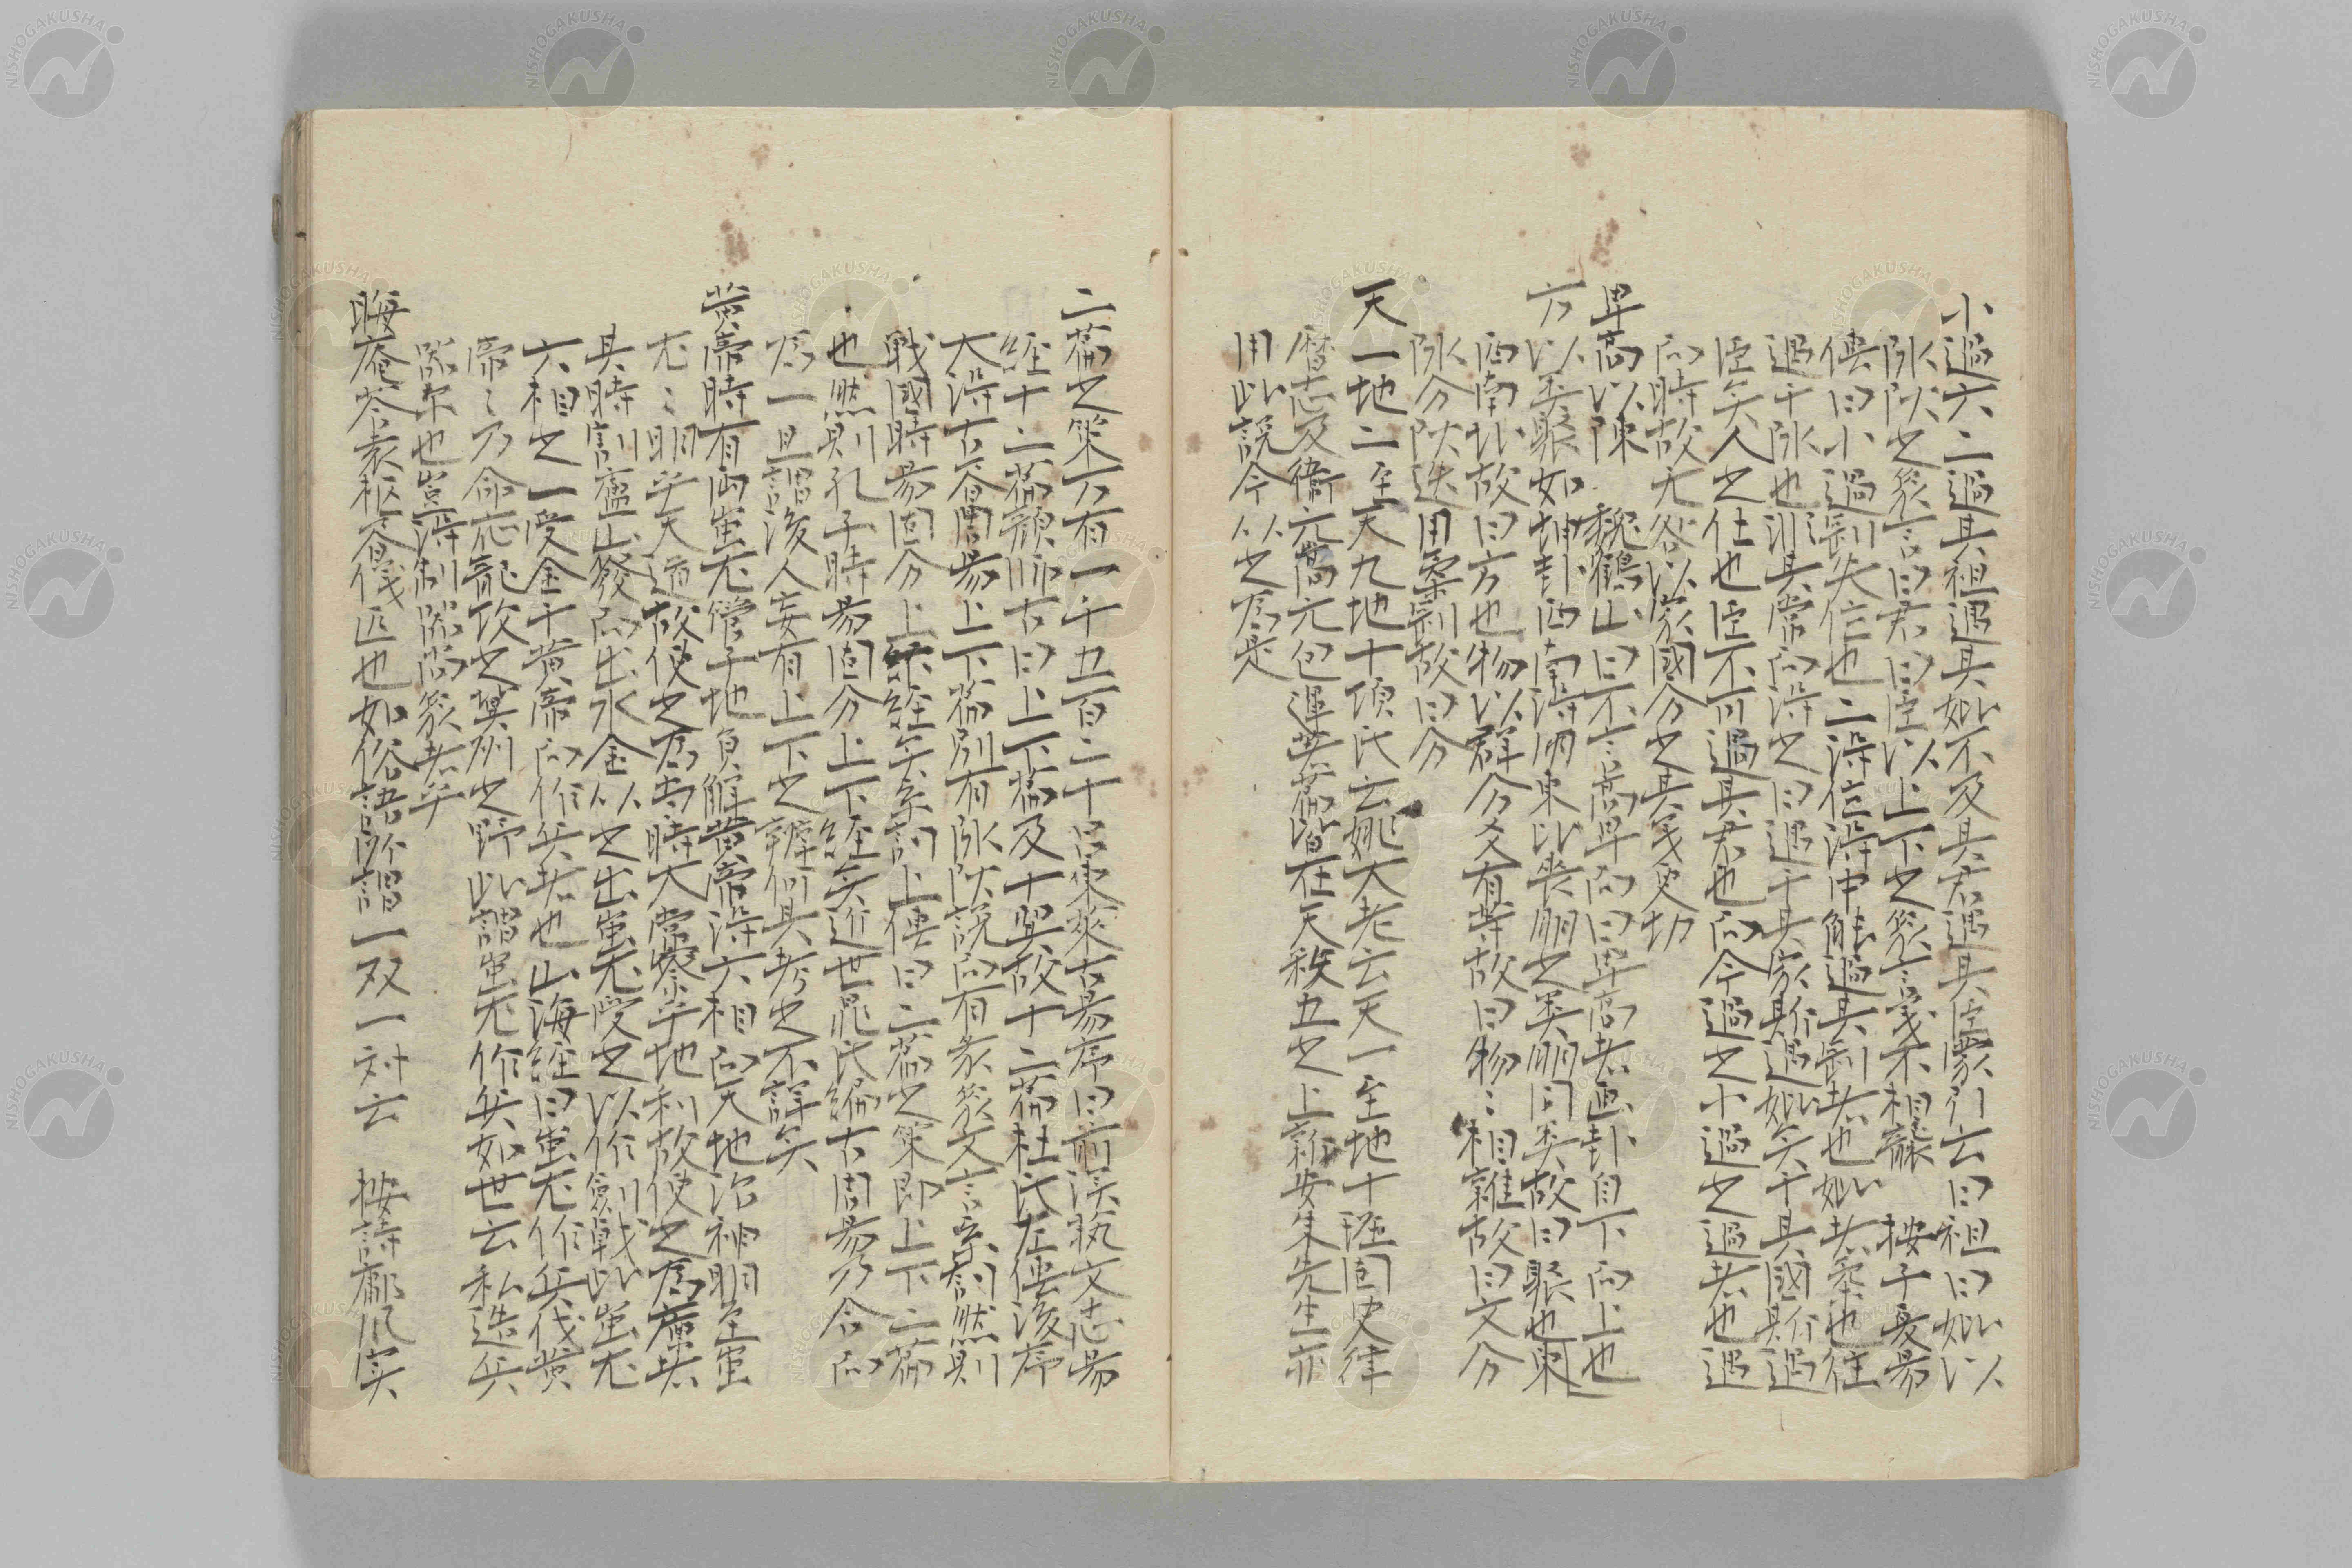 小過六二過其祖遇其妣不及其君遇其臣蒙引云曰祖曰妣以
阴阳之象言曰君曰臣以上下之象言義不相蒙　按子夏易
傳曰小過剛失位也二得位得中能過其剛者也妣者柔也往
過于阴也訓其常而得之曰遇于其家斯遇妣矣于其國斯過
臣矣人之仕也臣不可過其君也而今過之小過之過者也遇
而時故无咎以家國分之其義更切
卑高以陳　魏鶴山曰不言高卑而曰卑高者画卦自下而上也
方以类聚如坤卦西南得朋東北喪朋之类朋同类故曰聚也東
西南北故曰方也物以群分爻有等故曰物〻相雜故曰文分
阴分阳迭用柔剛故曰分
天一地二至天九地十項氏云姚大老云天一至地十班固史律
曆志及衛元嵩元包運蓍篇皆在天秩五之上新安朱先生亦
用此說今以之為是
二篇之策万有一千五百二十呂東萊古易序曰前漢執文志易
経十二篇顔師古曰上下篇及十翼故十二篇杜氏左傳後序
大得古眘周易上下篇別有阴阳說而有彖象文言系辞然則
戦國時易固分上下経矣系詞上傳曰二篇之策即上下二篇
也然則孔子時易固分上下経矣近世晁氏編古周易乃合而
為一且謂後人妄有上下之辨何其考之不詳矣
黄帝時有両蚩尤管子地員觧黄帝得六相而天地治神明至蚩
尤〻明乎天道故使之為当時大常察乎地利故使之為廩者
其時則言盧山發而出水金以之出蚩尤受之以作劍戟此蚩尤
六相之一受金于黄帝而作兵者也山海経曰蚩尤作兵伐黄
帝〻乃命応龍攻之冀州之野此謂蚩尤作兵如世云私造兵
器尓也豈得制器尚象者乎
晦庵答袁枢眘儀匹也如俗語所謂一双一対云　按詩鄘风実